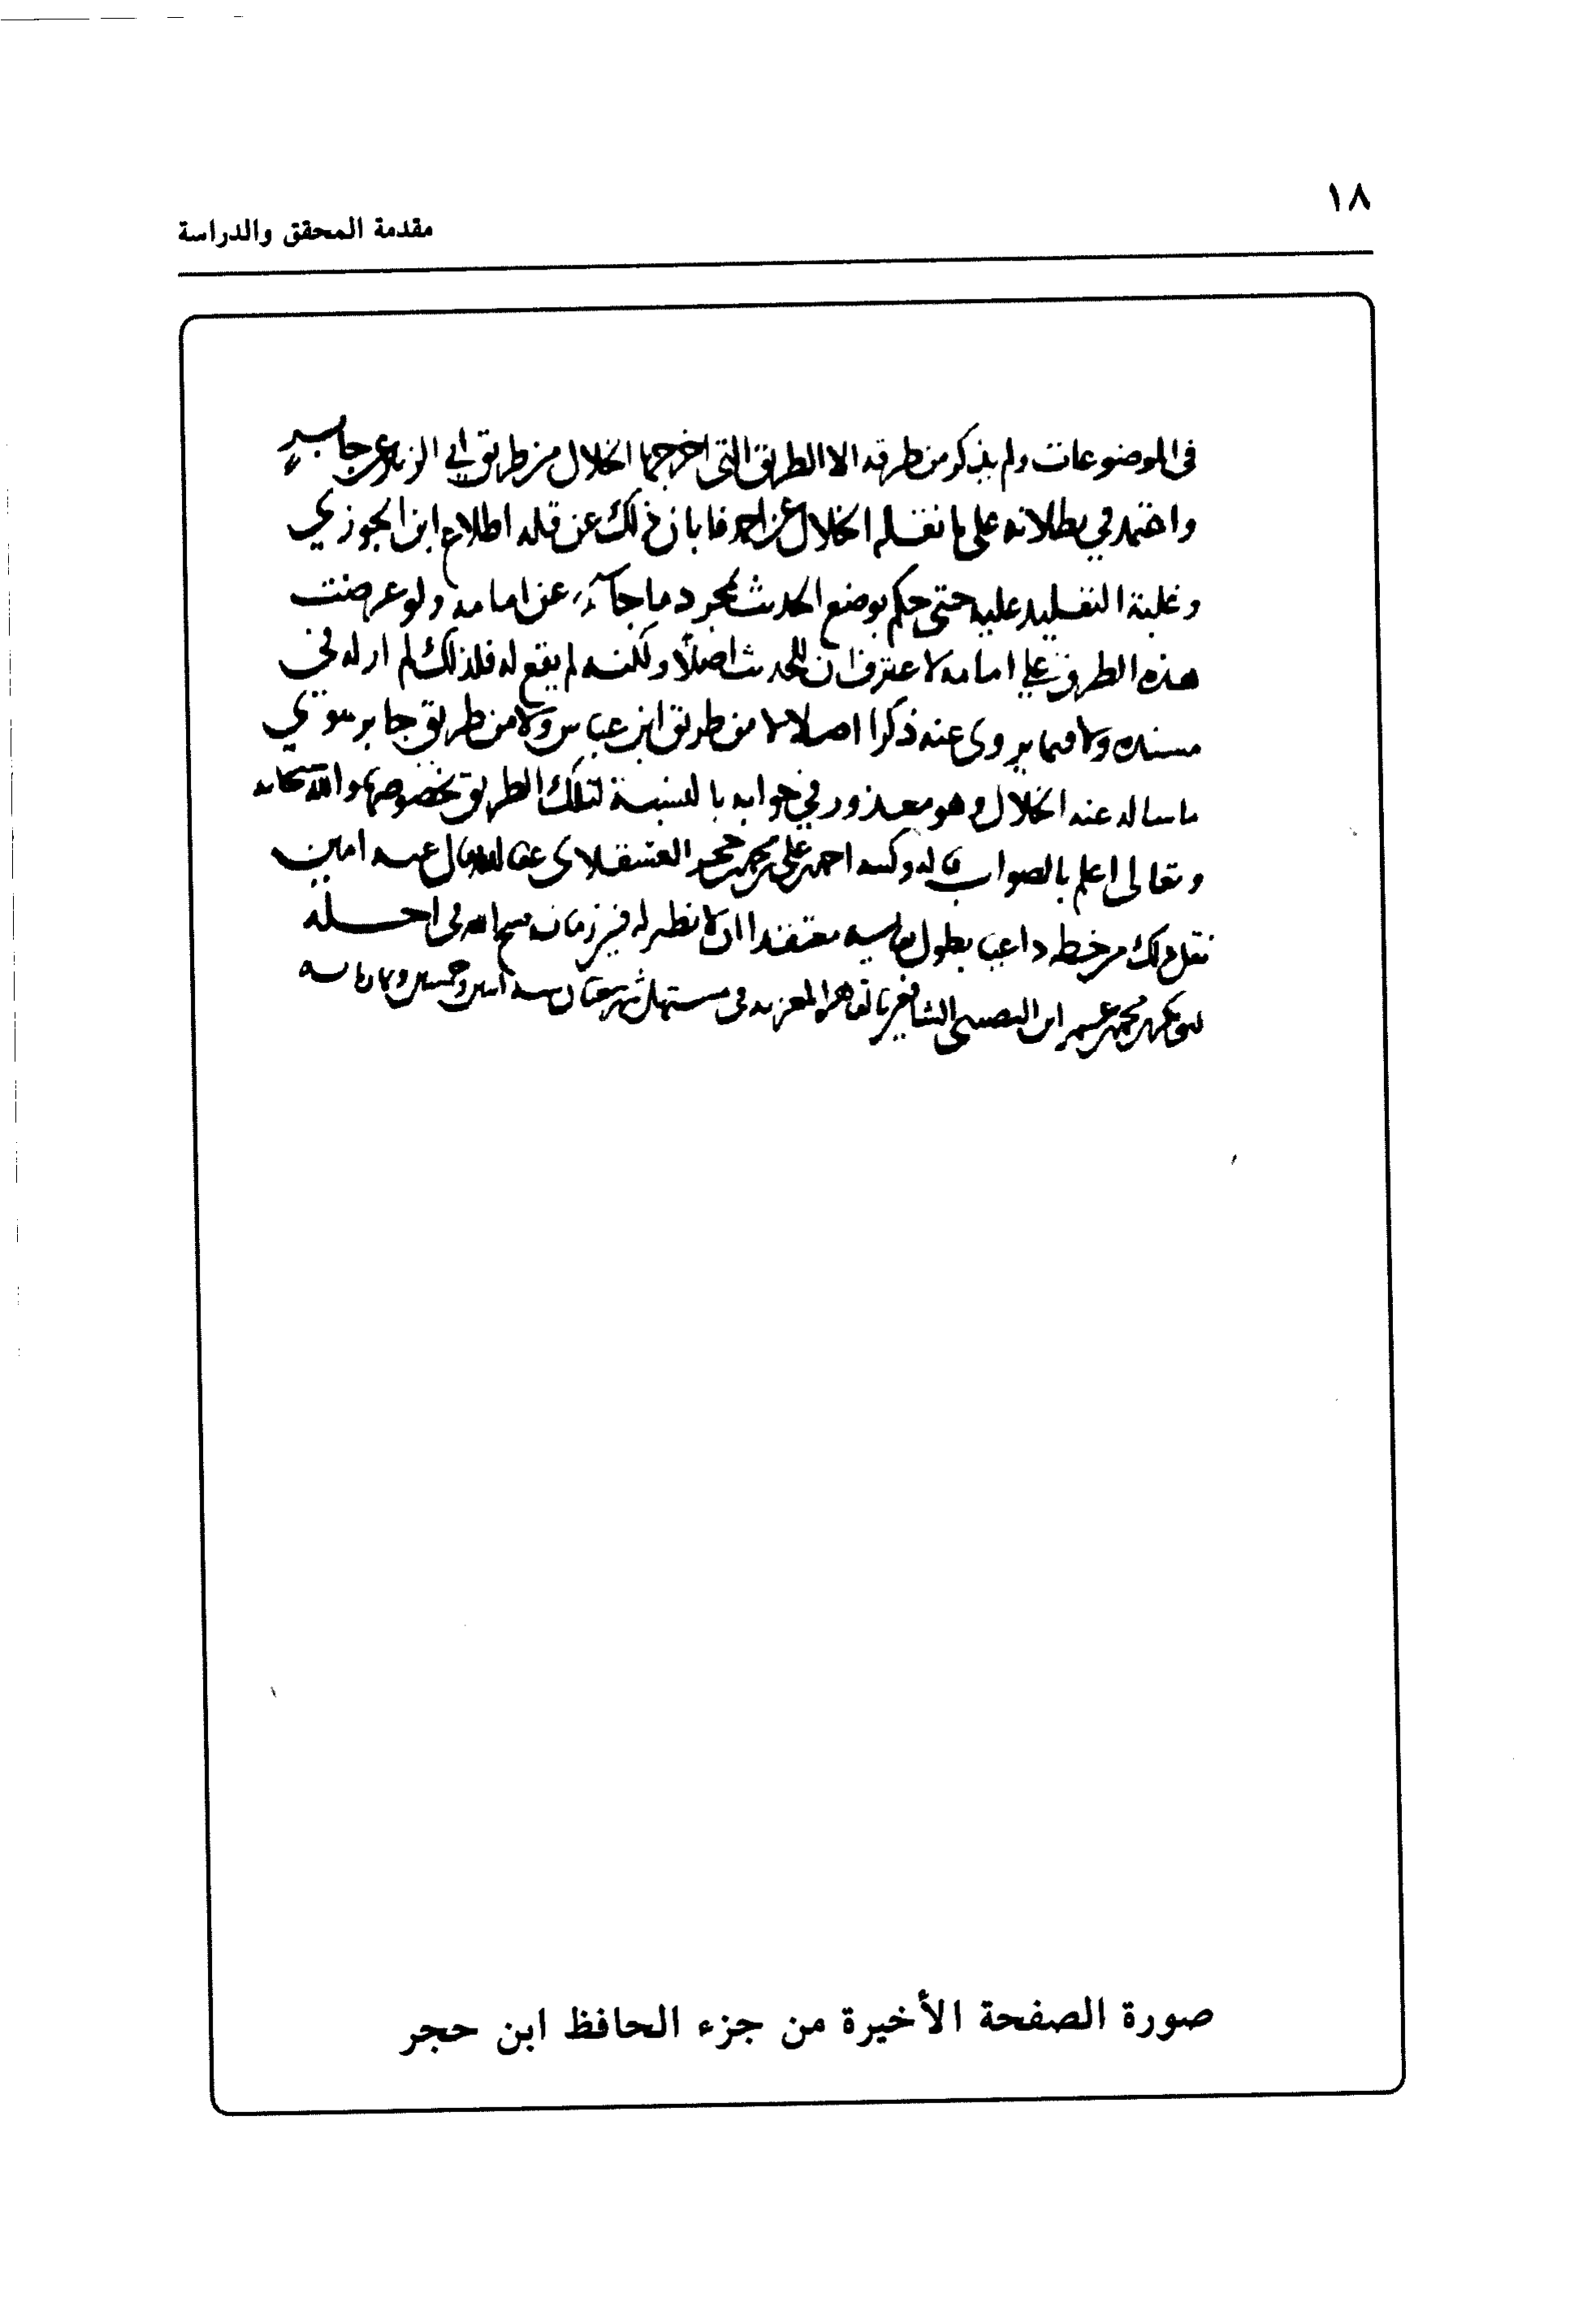 ١٨
مقدمة المحقق والدراسة
في الموضوعات ولم يذكر من طرقه الا الطريق التي اخرجها الخلال من طريق ابي الزبير عن جابر
واعتمد في بطلانه على ما نقله الخلال عن احمد فابان ذلك عن قلة اطلاع ابن الجوزي
وغلبة التقليد عليه حتى حكم بوضع الحديث بمجرد ما جاء عن امامه ولو عرضت
هذه الطرق علي امامه لاعترف ان للحديث اصلا ولكنه لم يقع له فلذلك لم ار له في
مسنده ولا فيما يروى عنه ذكرا اصلا لا من طريق ابن عباس ولا من طريق جابر سوي
ما ساله عنه الخلال وهو معذور في جوابه بالنسبة لتلك الطريق بخصوصها والله سبحانه
وتعالى اعلم بالصواب قاله وكتبه احمد بن علي بن محمد بن حجر العسقلاني عفا الله تعالى عنه امين
نقل ذلك من خطه داعيا بطول معتقدا ان لا نظير له في زمانه في اجله
محمد بن عمر ابن النصيبي الشافعي بالقاهرة المعزية في مستهل شهر سنة وخمسين وثمان مايه
صورة الصفحة الأخيرة من جزء الحافظ ابن حجر